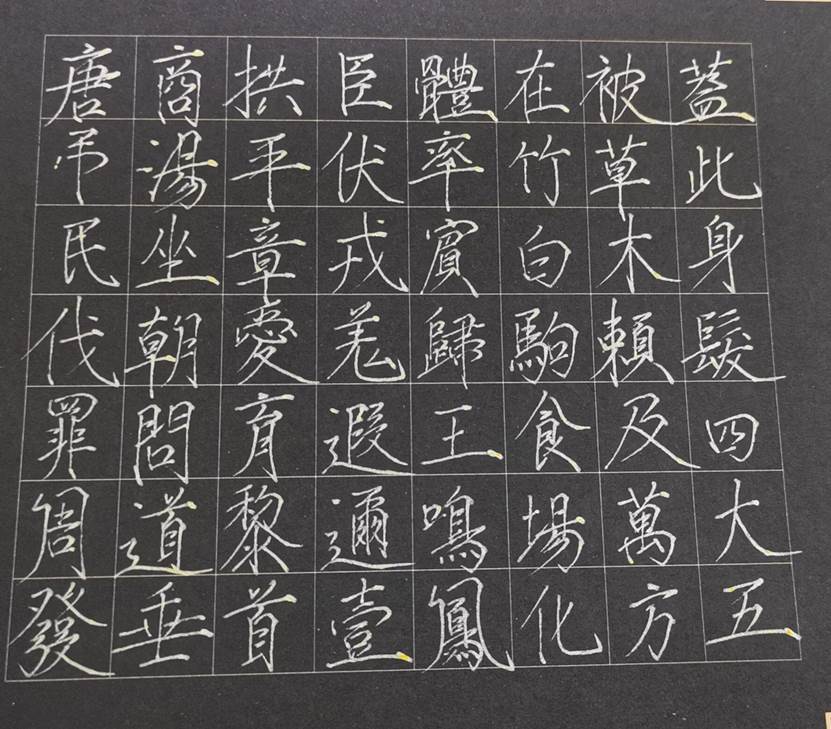 唐吊民伐罪周發
商湯坐朝問道垂
拱平章愛育黎首
臣伏戎羌遐邇壹
體率賓歸王鳴鳳
在竹白駒食場化
被草木賴及萬方
蓋此身髮四大五